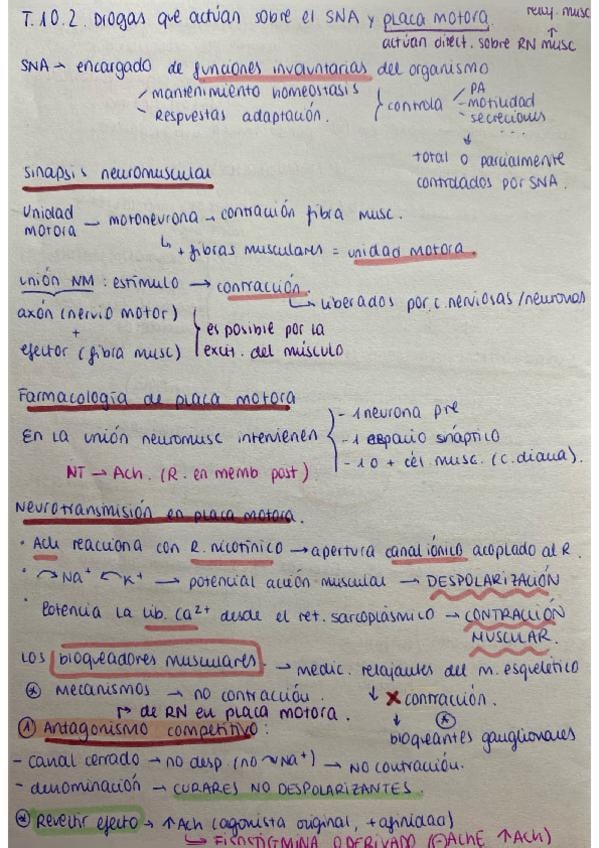 T.10.2. Drogas que actúan sobre el SNA y placa motora. relaj. musc
↑
actúan direct. sobre RN musc
SNA → encargado de funciones involuntarias del organismo
mantenimiento homeostasis
Respuestas adaptación.
controla
PA
motilidad
secreciones
...
↓
total o parcialmente
controlados por SNA.
Sinapsis neuromuscular
Unidad motora — motoneurona → contracción fibra musc.
↳ + fibras musculares = unidad motora.
unión NM: estímulo → contracción.
↳ liberados por c. nerviosas/neuronas
axón (nervio motor)
+
efector (fibra musc)
es posible por la
excit. del músculo
Farmacología de placa motora
En la unión neuromusc intervienen
- 1 neurona pre
- 1 espacio sináptico
- 1 o + cél musc. (c. diana).
NT → Ach. (R. en memb post)
Neurotransmisión en placa motora.
· Ach reacciona con R. nicotínico → apertura canal iónico acoplado al R.
· Na⁺ K⁺ → potencial acción muscular → DESPOLARIZACIÓN
· Potencia la lib. Ca²⁺ desde el ret. sarcoplásmico → CONTRACCIÓN
MUSCULAR.
Los bloqueadores musculares → medic. relajantes del m. esquelético
* Mecanismos → no contracción. ↓ X contracción.
↳ de RN en placa motora. ↓ *
① Antagonismo competitivo: bloqueantes ganglionares
- canal cerrado → no desp. (no Na⁺) → no contracción.
- denominación → CURARES NO DESPOLARIZANTES.
* Revertir efecto → ↑Ach (agonista original, + afinidad)
↳ FISOSTIGMINA O DERIVADO (-)AChE ↑ACh)